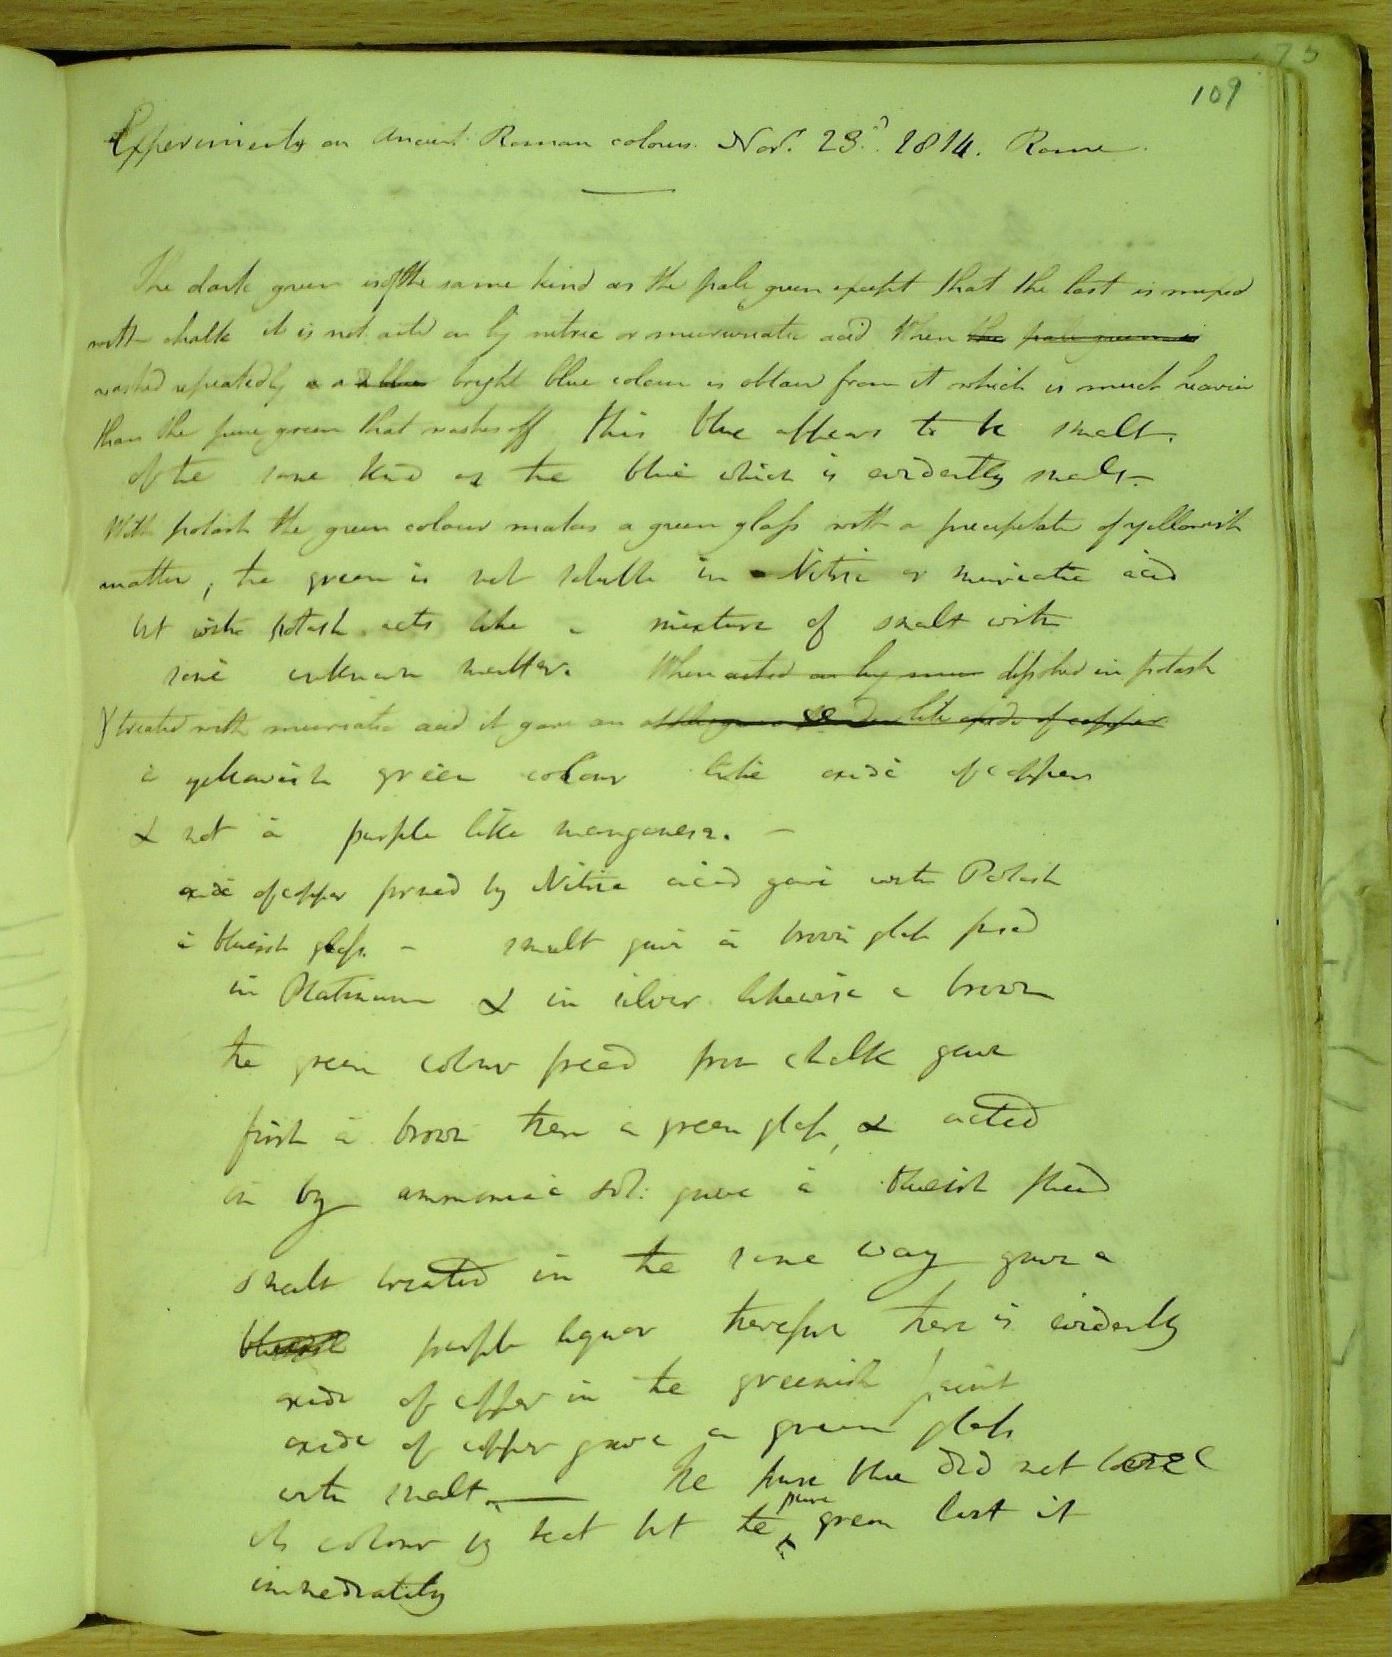 109
Experiments on Ancient Roman colours. Nov. 23.d 1814. Rome.
The dark green is of the same kind as the pale green except that the last is mixed
with chalk it is not acted on by nitric or muriatic acid When the pale green is
washed repeatedly a a blue bright blue colour is obtain from it which is much heavier
than the pure green that washes off this blue appears to be smalt.
of the same kind as the blue which is evidently smalt
With potash the green colour makes a green glass with a precipitate of yellowish
matter; the green is not soluble in Nitric or muriatic acid
but with potash acts like a mixture of smalt with
some unknown matter. When acted on by dissolved in potash
& treated with muriatic acid it gave an like oxide of copper
a yellowish green colour like oxide of copper
& not a purple like manganese. –
oxide of copper formed by Nitric acid gave with Potash
a blueish glass. – smalt gave a brown glass fused
in Platinum & in silver likewise a brown
the green colour freed from chalk gave
first a brown then a green glass, & acted
on by ammonia sol: gave a blueish fluid
smalt treated in the same way gave a
blueish purple liquor therefore there is evidently
oxide of copper in the greenish paint
oxide of copper gave a green glass
with smalt. — The pure blue did not loose
its colour by heat but the pure green lost it
immediately